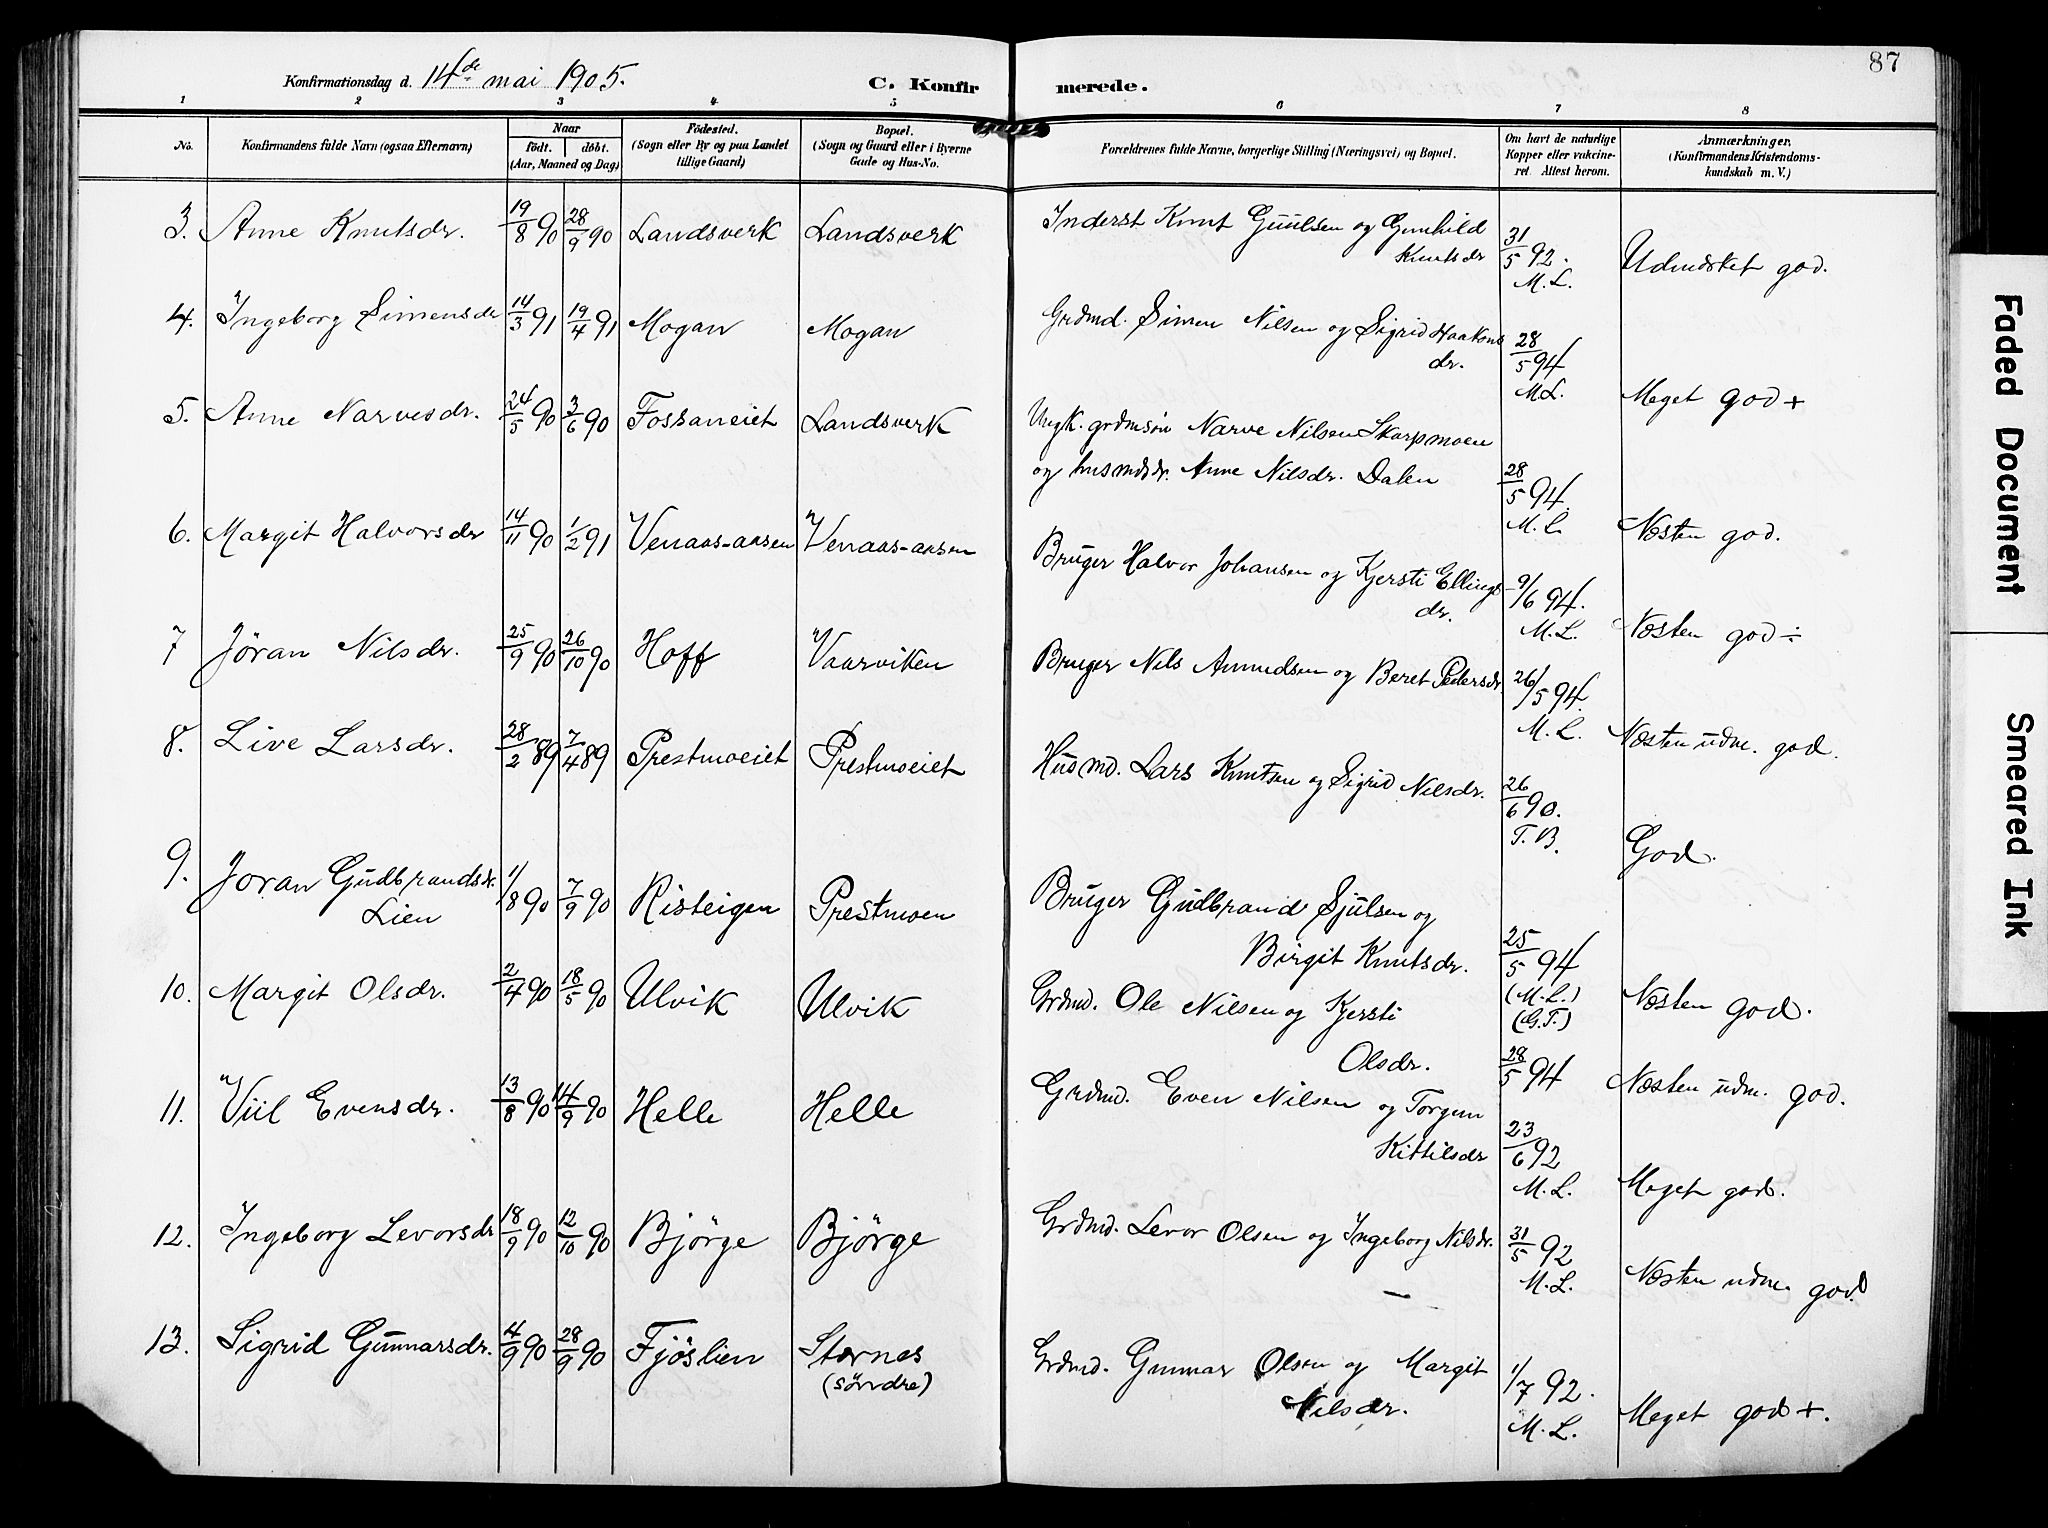 87
Konfirmationsdag d. 14de mai 1905.
C. Konfirmerede.
1 2 3 4 5 6 7 8
No.
Konfirmandens fulde Navn (ogsaa Efternavn)
Naar
født. døbt.
(Aar, Maaned og Dag)
Fødested.
(Sogn eller By og paa Landet
tillige Gaard)
Bopæl.
(Sogn og Gaard eller i Byerne
Gade og Hus-No.
Forældrenes fulde Navne, borgerlige Stilling (Næringsvei) og Bopæl.
Om havt de naturlige
Kopper eller vakcine-
ret. Attest herom.
Anmærkninger.
(Konfirmandens Kristendoms-
kundskab m. V.)
3. Anne Knutsdr. 19/8 90 28/9 90 Landsverk Landsverk Inderst Knut Guulsen og Gunhild
Knutsdr 31/5 92. M. L. Udmærket god.
4. Ingeborg Simensdr 14/3 91 19/4 91 Mogan Mogan Grdmd. Simen Nilsen og Sigrid Haaksns
dr. 28/5 94 M.L. Meget god +
5. Anne Narvesdr. 24/5 90 3/6 90 Fossaneiet Landsverk Ungk. grdmsøn Narve Nilsen Skarpmoen
og husmdsdr. Anne Nilsdr. Dalen 28/5 94. M. L. Næsten god.
6. Margit Halvorsdr 14/11 90 1/2 91 Venaas-aasen Venaas-aasen Bruger Halvor Johansen og Kjersti Ellings
dr. 9/6 94. M. L. Næsten god ÷
7 Jöran Nilsdr. 25/9 90 26/10 90 Hoff Vaarviken Bruger Nils Amundsen og Beret Pedersdr. 26/5 94. M. L. Næsten udm. god.
8. Live Larsdr. 28/2 89 7/4 89 Prestmoeiet Prestmoeiet Husmd. Lars Knutsen og Sigrid Nilsdr. 26/6 90. T. B. God.
9. Joran Gudbrandsdr.
Lien 1/8 90 7/9 90 Risteigen Prestmoen Bruger Gudbrand Sjulsen og
Birgit Knutsdr. 25/5 94 (M. L.) (G.T.) Næsten god.
10. Margit Olsdr. 2/4 90 18/5 90 Ulvik Ulvik Grdmd. Ole Nilsen og Kjersti
Olsdr. 28/5 94 Næsten udm. god.
11. Viil Evensdr. 13/8 90 14/9 90 Helle Helle Grdmd. Even Nilsen og Torgun
Kittilsdr 23/6 92 M. L. Meget god.
12. Ingeborg Levorsdr 18/9 90 12/10 90 Bjørge Bjørge Grdmd. Levor Olsen og Ingeborg Nilsdr. 31/5 92 M. L. Næsten udm. god
13. Sigrid Gunnarsdr. 4/9 90 28/9 90 Fjöslien Stærnes
(søndre) Grdmd. Gunnar Olsen og Margit
Nilsdr. 1/7 92. M. L. Meget god +.
Faded Document
Smeared Ink